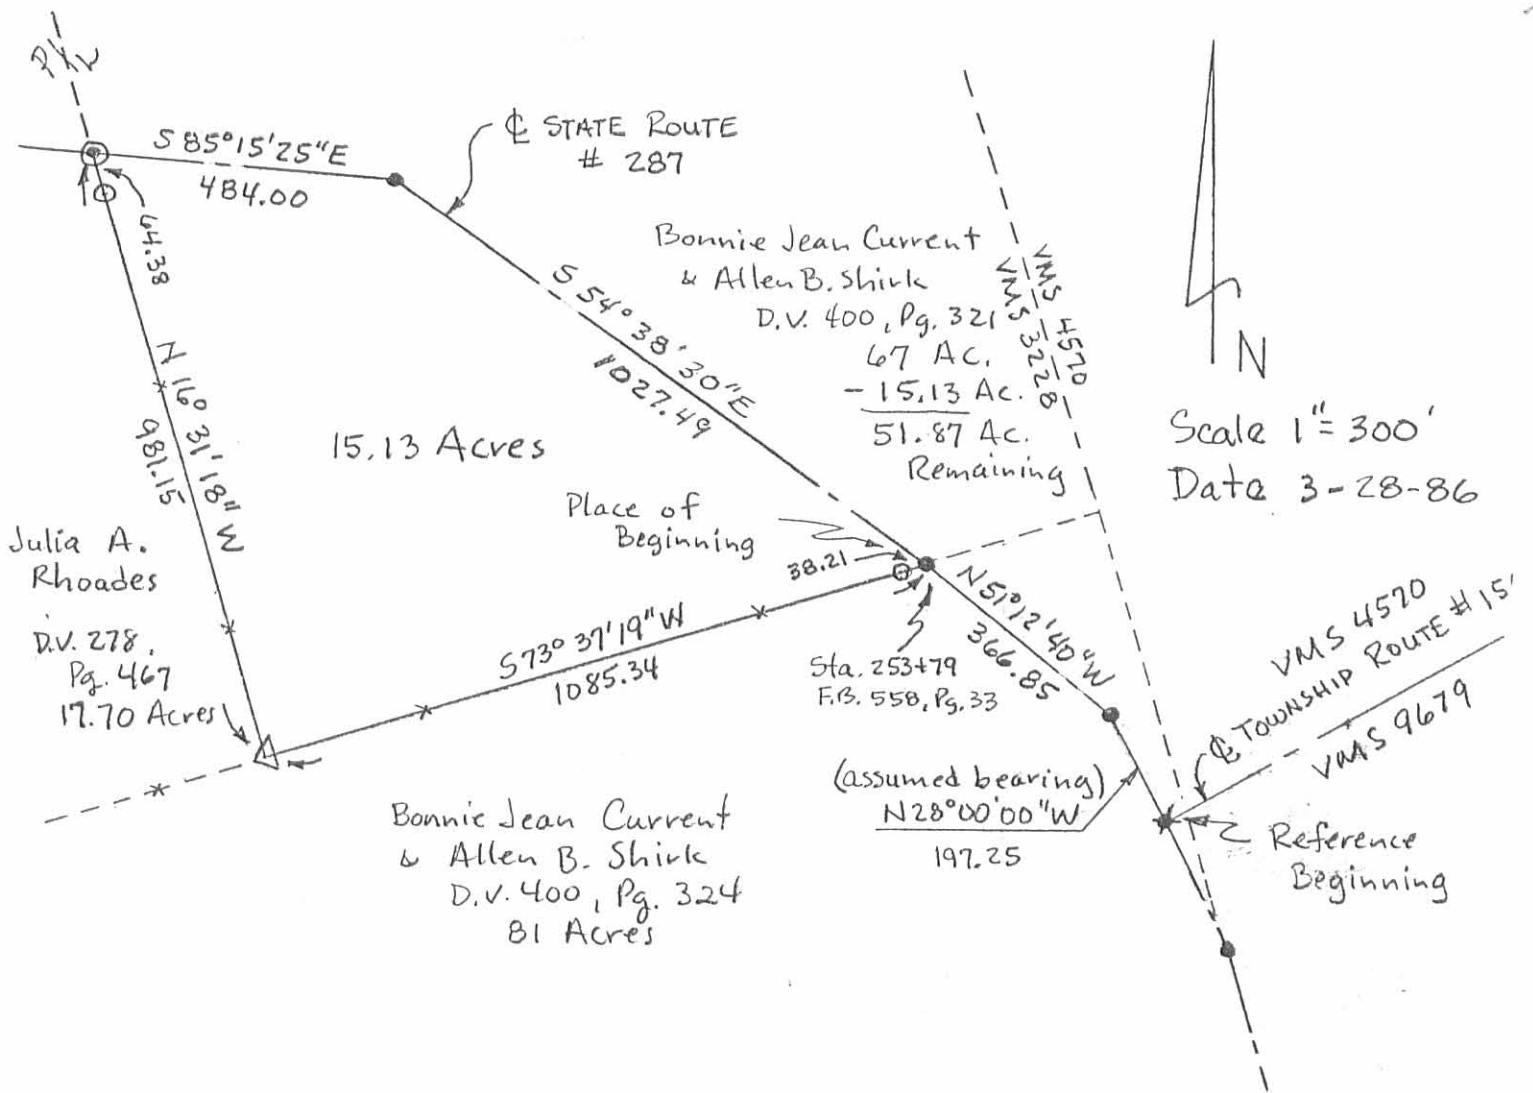 P/L
S 85°15'25"E
484.00
℄ STATE ROUTE
# 287
64.38
N 16° 31' 18" W
981.15
S 54° 38' 30"E
1027.49
15.13 Acres
Bonnie Jean Current
& Allen B. Shirk
D.V. 400, Pg. 321
67 AC.
- 15.13 Ac.
51.87 Ac.
Remaining
VMS 4570
VMS 3228
N
Scale 1"= 300'
Date 3-28-86
Place of
Beginning
38.21
Julia A.
Rhoades
D.V. 278,
Pg. 467
17.70 Acres
S73° 37'19"W
1085.34
Sta. 253+79
F.B. 558, Pg. 33
N51°12'40"W
366.85
VMS 4570
℄ TOWNSHIP ROUTE # 15
VMS 9679
(assumed bearing)
N28°00'00"W
197.25
Reference
Beginning
Bonnie Jean Current
& Allen B. Shirk
D.V. 400, Pg. 324
81 Acres